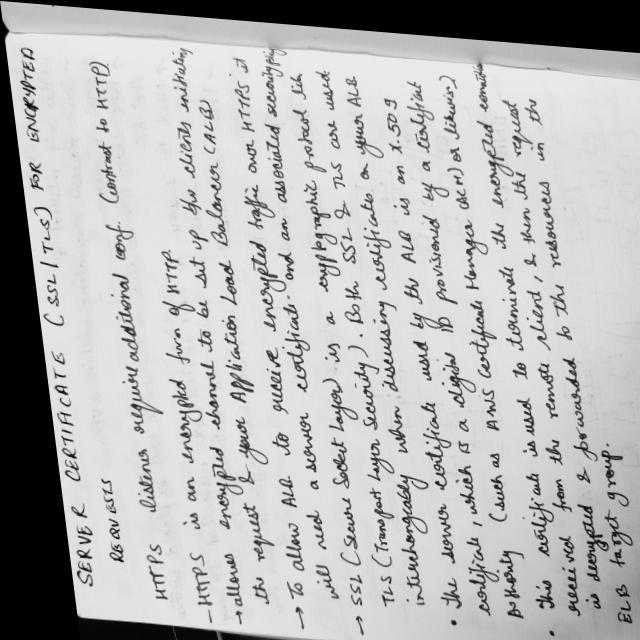 SERVER CERTIFICATE (SSL/TLS) FOR ENCRYPTED
REQUESTS
HTTPS listener require additional conf. (contrast to HTTP)
- HTTPS is an encrypted form of HTTP
→ allows encrypted channel to be set up the clients initiating
the request & your Application Load Balancer (ALB)
→ To allow ALB to receive encrypted traffic over HTTPS it
will need a server certificate and an associated security policy
→ SSL (Secure Socket Layer) is a cryptographic protocol like
TLS (Transport Layer Security). Both SSL & TLS are used
interchangeably when discussing certificates on your ALB
• The server certificate used by the ALB is an X.509
certificate, which is a digital ID provisioned by a certificate
Authority (such as AWS Certificate Manager (ACM) or
• This certificate is used to terminate the encrypted
received from the remote client, & then the request
is decrypted & forwarded to the resources in the
ELB target group.